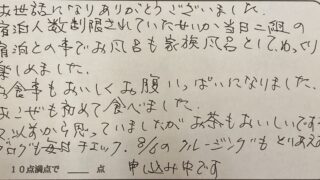 お世話になりありがとうございました.
宿泊人数制限されていたせいか当日二組の
宿泊との事でお風呂も家族風呂としてゆっくり
楽しめました.
お食事もおいしくお腹いっぱいになりました.
も初めて食べました.
以前から思っていましたがお茶もおいしいです
ブログも毎日チェック. 8/6のクルージングも
10点満点で ___ 点 申し込み中です